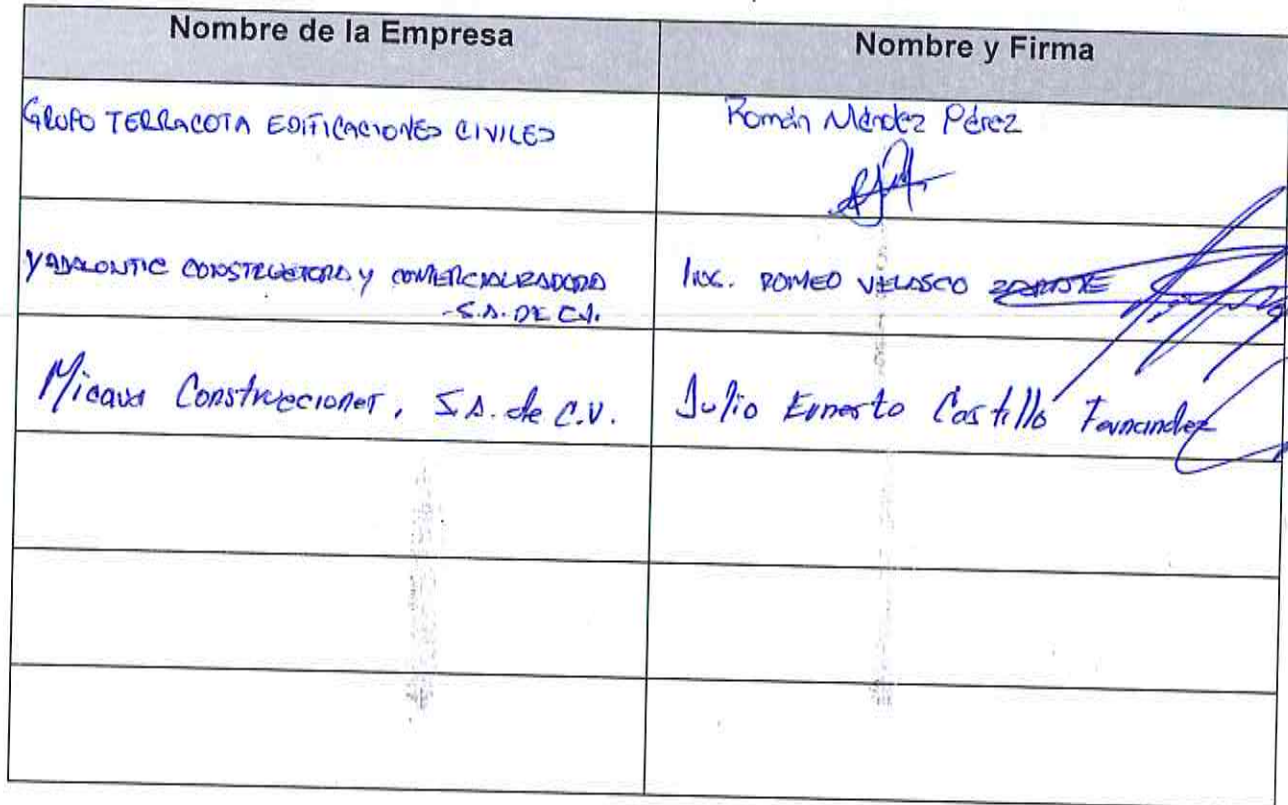 Nombre de la Empresa
Nombre y Firma
GRUPO TERRACOTA EDIFICACIONES CIVILES
Román Méndez Pérez
YADALONTIC CONSTRUCTORA Y COMERCIALIZADORA
S.A. DE C.V.
ING. ROMEO VELASCO
Micava Construcciones, S.A. de C.V.
Julio Ernesto Castillo Fernandez